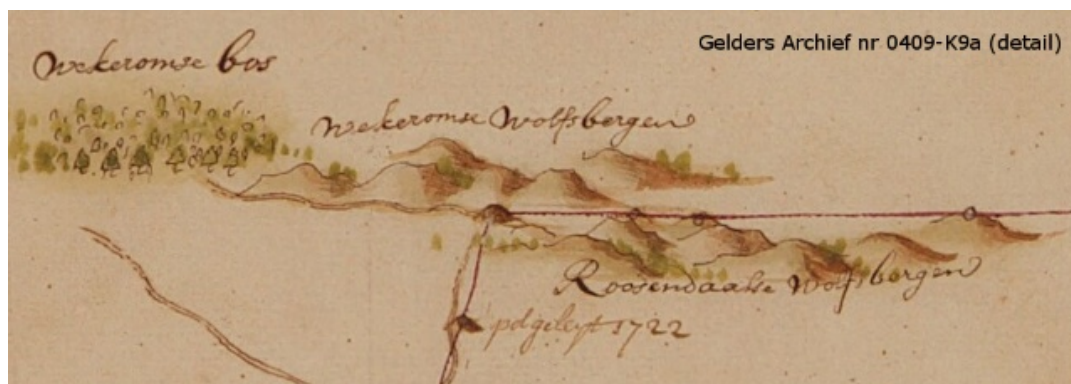 Gelders Archief nr 0409-K9a (detail)
Wekeromse bos
Wekeromse Wolfsbergen
Roosendaalse Wolfsbergen
1722